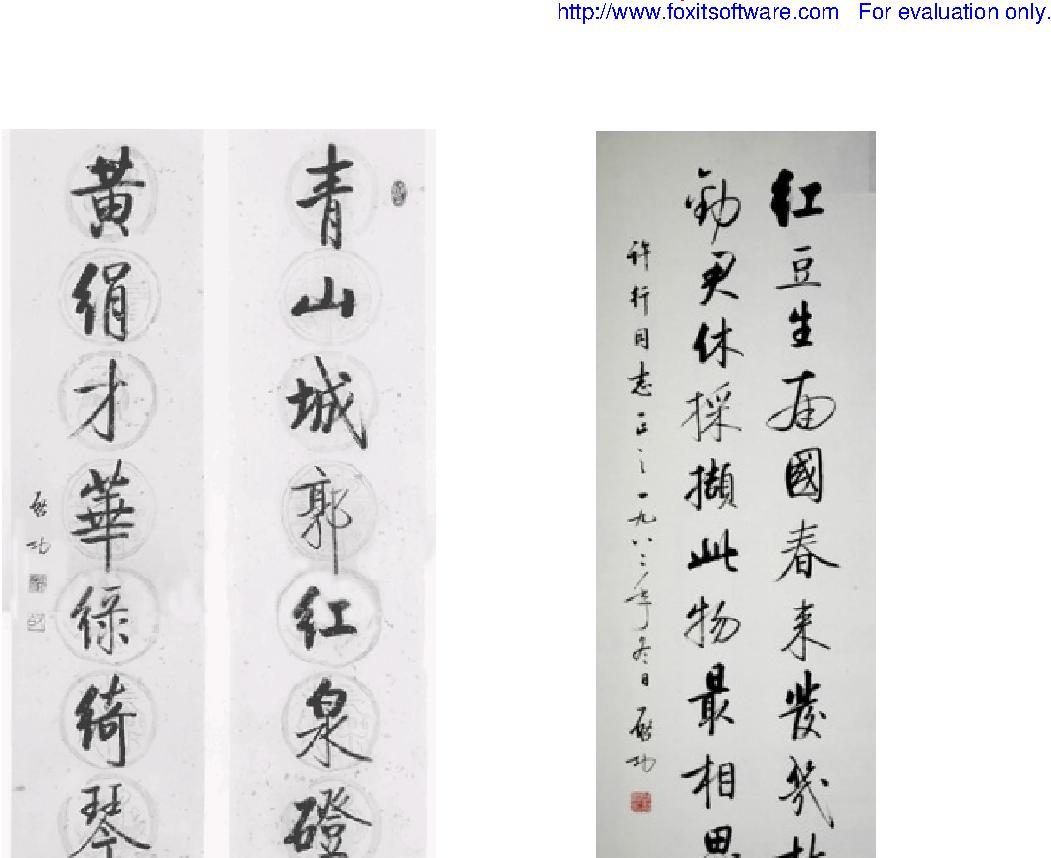 http://www.foxitsoftware.com For evaluation only.
青山城郭红泉磴
黄绢才华绿绮琴
启功
红豆生南國春来發幾枝
勸君休採擷此物最相思
许行同志正之一九八二年冬日启功